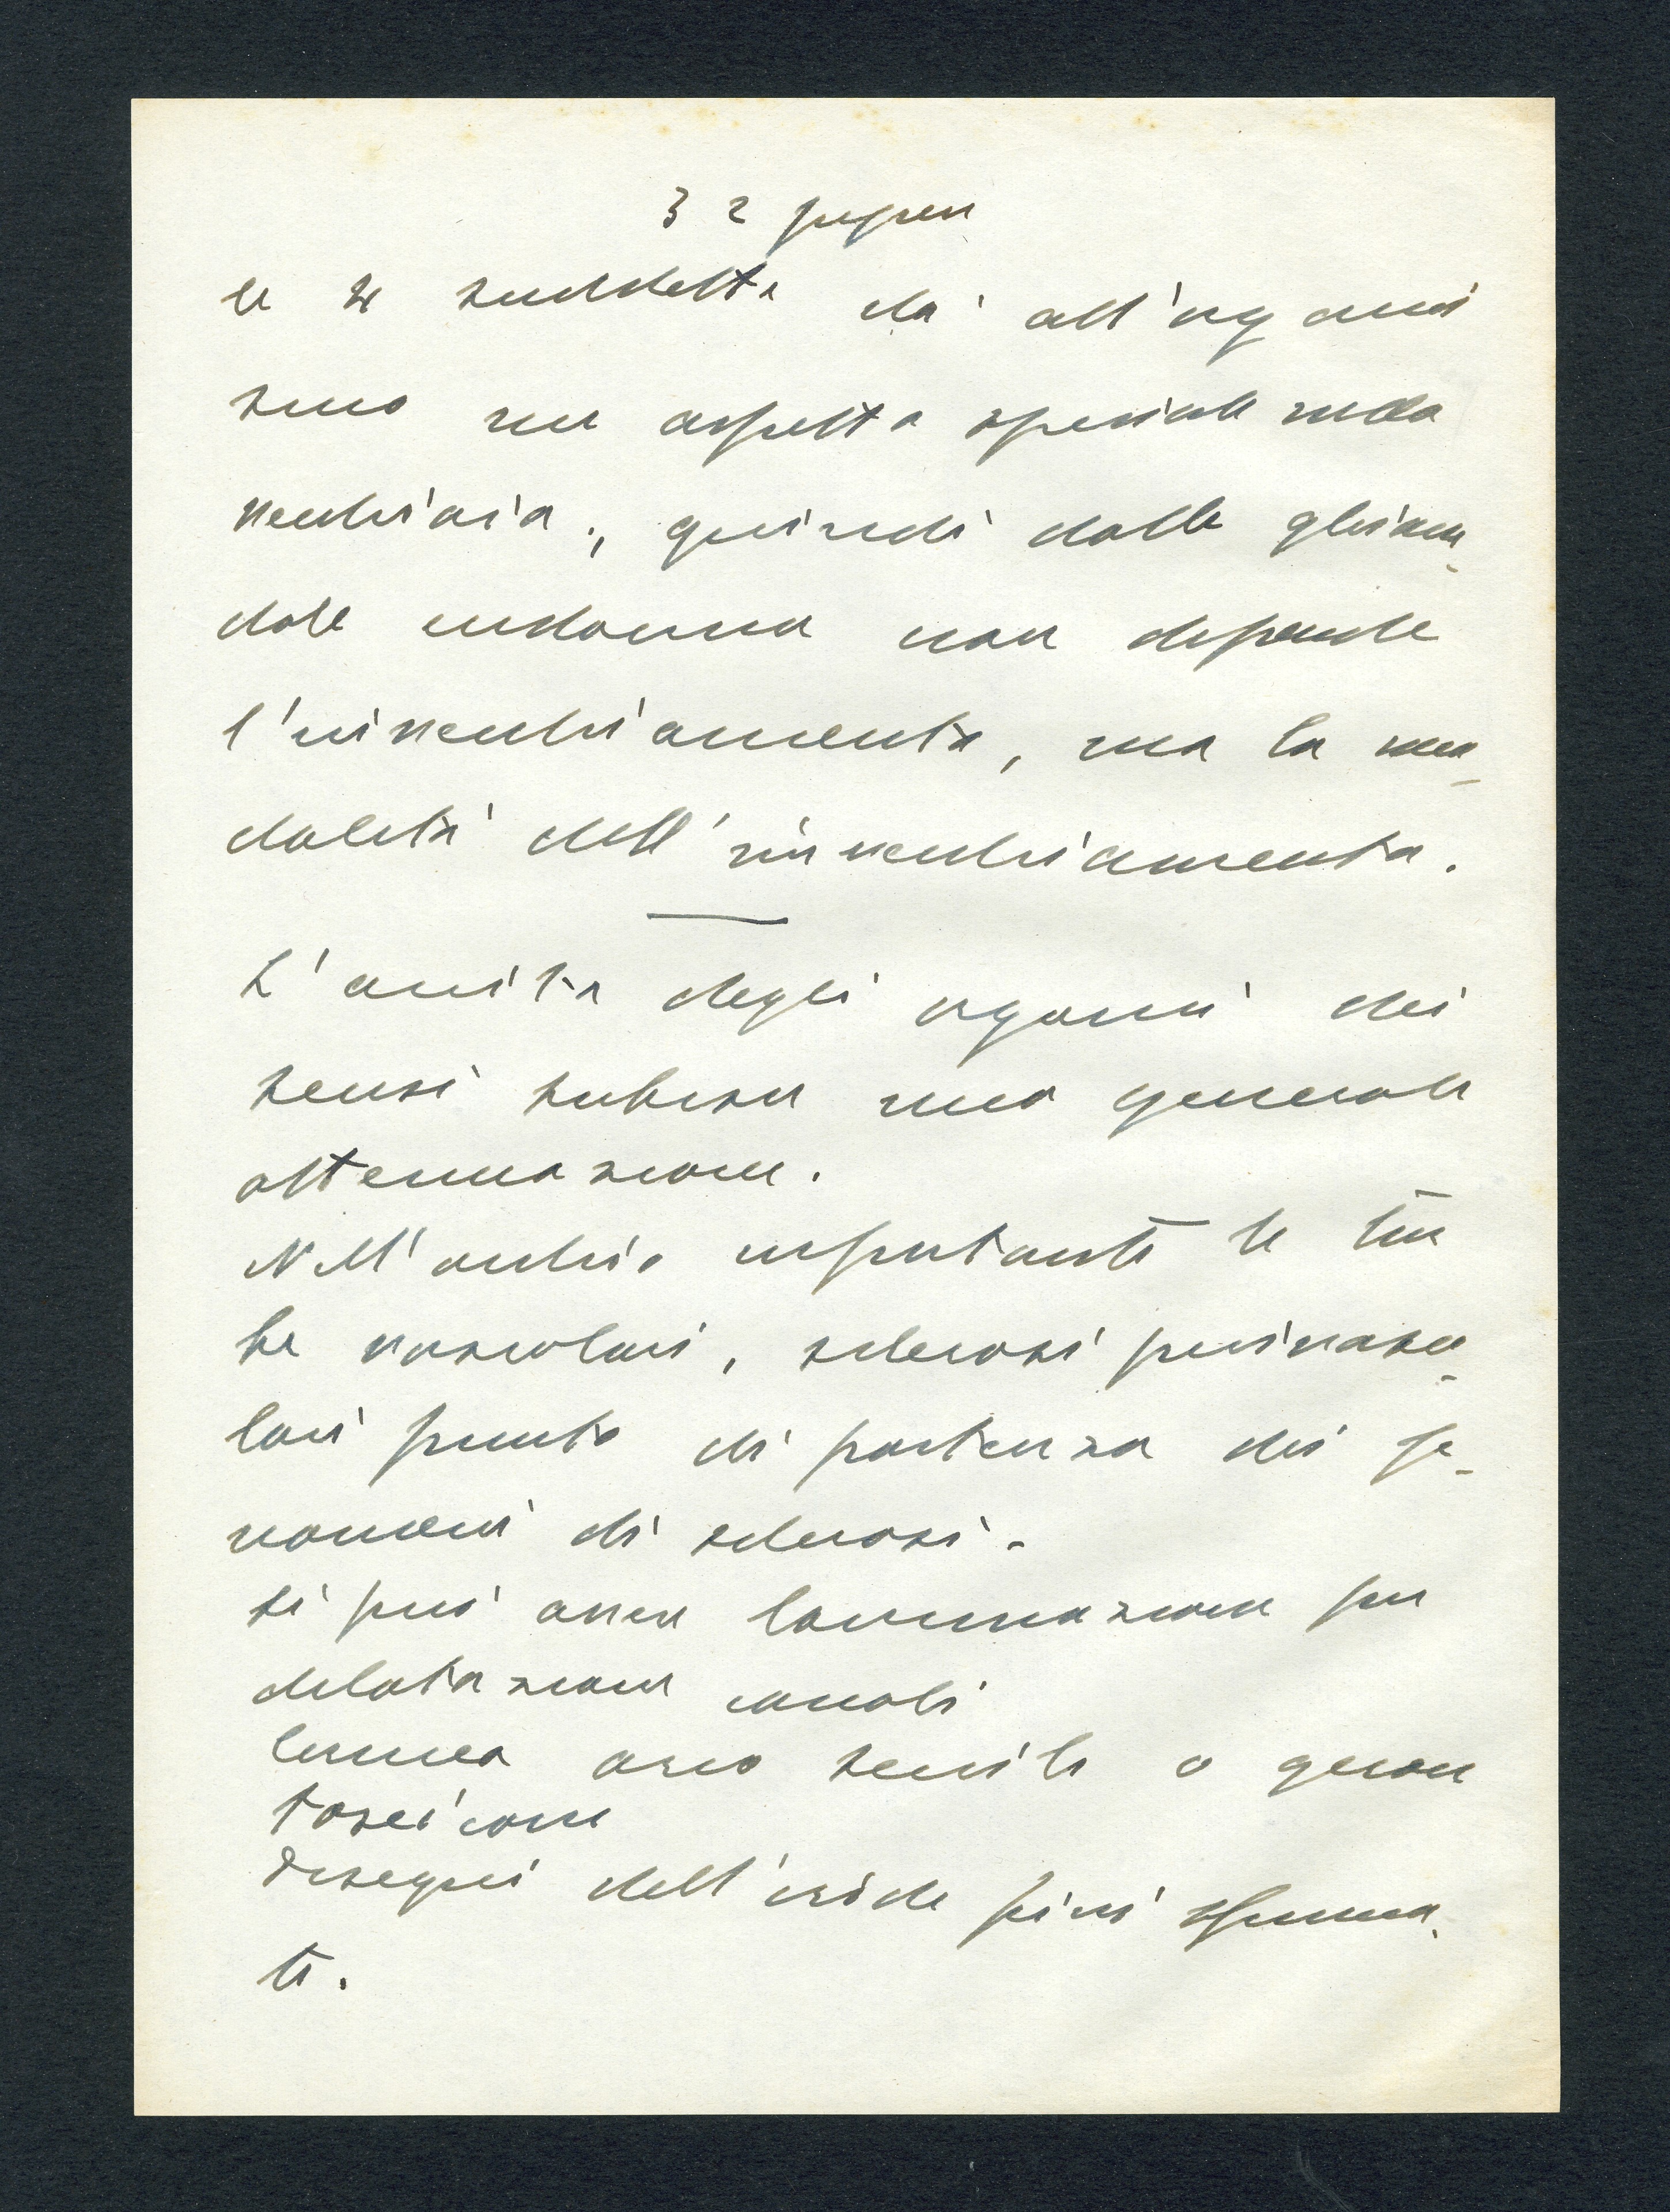 3 2
le 4 suddette dà all'organi
smo un aspetto speciale nella
vecchiaia; quindi dalle ghian-
dole endocrine non dipende
l'invecchiamento, ma la mo-
dalità dell'invecchiamento.
L'acuità degli organi dei
sensi subisce una generale
attenuazione.
Nell'occhio importanti le tur
be vascolari, sclerosi perivasco-
lari punto di partenza dei fe-
nomeni di sclerosi.
Si può avere lacrimazione per
dilatazione canali
cornea arco senile o geron
toxeicone
Disegni dell'iride più sfuma-
ti.